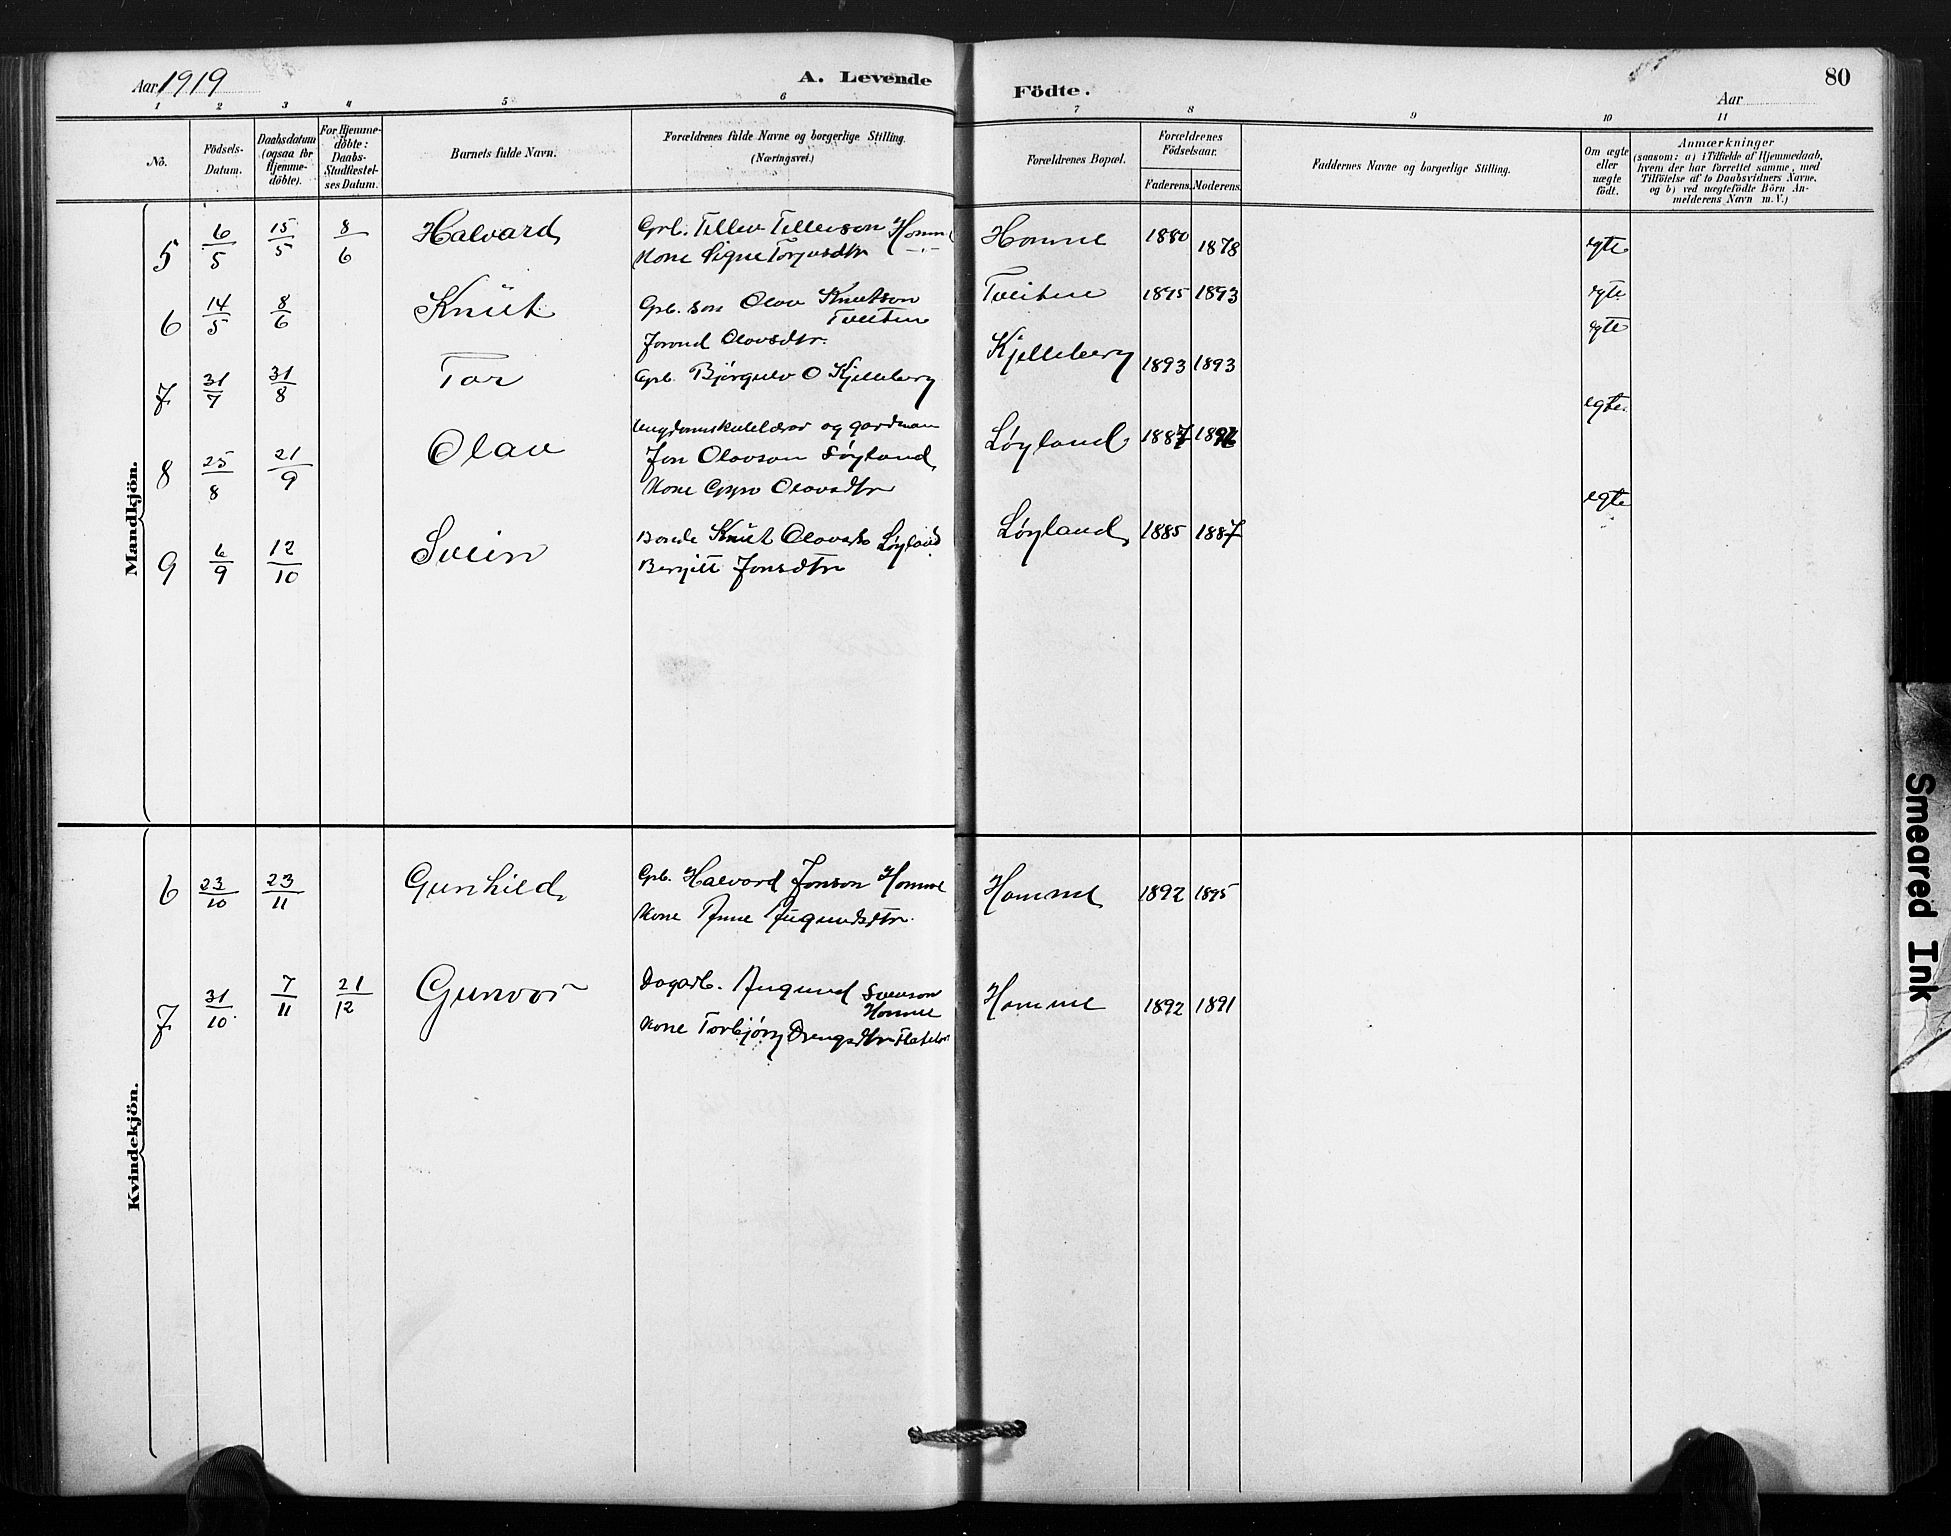 Aar 1919
A. Levende
Födte.
Aar
80
1 2 3 4 5 6 7 8 9 10 11
No.
Födsels-
Datum.
Daabsdatum
(ogsaa for
Hjemme-
döbte).
For Hjemme-
döbte:
Daabs-
Stadfæstel-
ses Datum.
Barnets fulde Navn.
Forældrenes fulde Navne og borgerlige Stilling.
(Næringsvei.)
Forældrenes Bopæl.
Forældrenes
Födselsaar.
Faderens. Moderens.
Faddernes Navne og borgerlige Stilling.
Om ægte
eller
uægte
födt.
Anmærkninger
(saasom: a) i Tilfælde af Hjemmedaab,
hvem der har forrettet samme, med
Tilföielse af to Daabsvidners Navne,
og b) ved uægtefödte Börn An-
melderens Navn m. V.)
Mandkjön.
5 6/5 15/5 8/6 Halvard Grb. Tellev Tellevson Homme
Kone Signe Torjusdtr —"— Homme 1880 1878 egte
6 14/5 8/6 Knut Grb. son Olav Knutson
Tveiten
Jorond Olavsdtr. Tveiten 1895 1893 egte
7 31/7 31/8 Tor Grb. Bjørgulv O Kjelleberg Kjelleberg 1893 1893 egte
8 25/8 21/9 Olav Ungdomskulelærar og gardman
Jon Olavson Løyland
Kone Gyro Olavsdtr Løyland 1887 egte.
9 6/9 12/10 Svein Bonde Knut Olavson Løyland
Bergitt Jonsdtr Løyland 1885 1887 egte
Kvindekjön.
6 23/10 23/11 Gunhild Grb. Halvard Jonson Homme
Kone Anne Augundsdtr. Homme 1892 1895
7 31/10 7/11 21/12 Gunvor Dagarb. Augund Sveinson
Homme
Kone Torbjørg Drengsdtr Homme 1892 1891
Smeared Ink